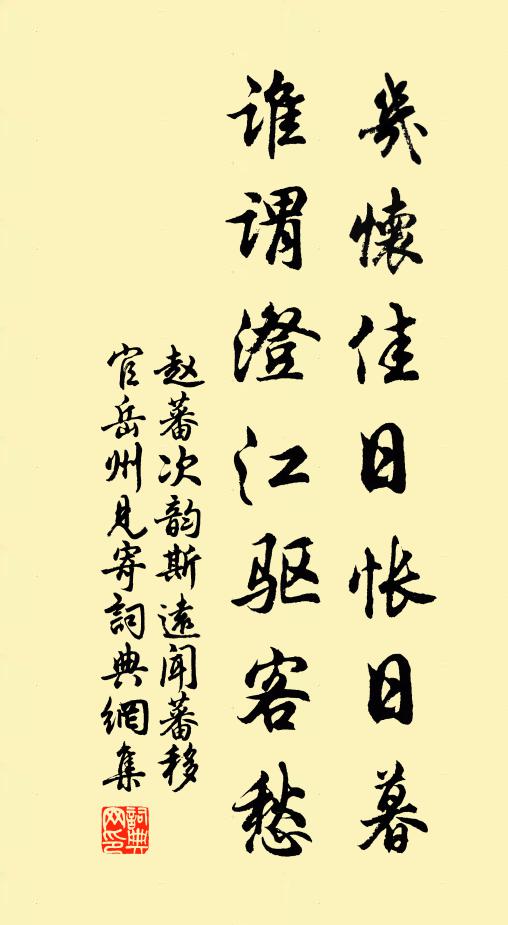 几懷佳日怅日暮
谁谓澄江驱客愁
赵蕃次韵斯遠闻蕃移
官岳州见寄詞典網集
詞典
网印